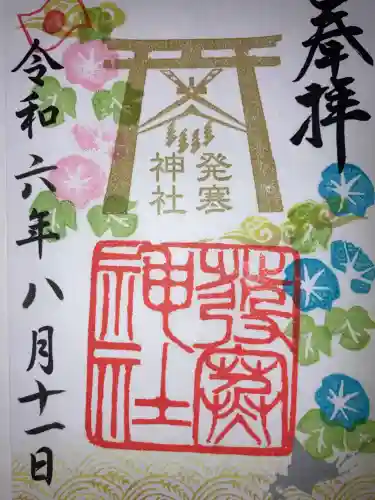 奉拝
発寒
神社
発寒
神社
令和六年八月十一日